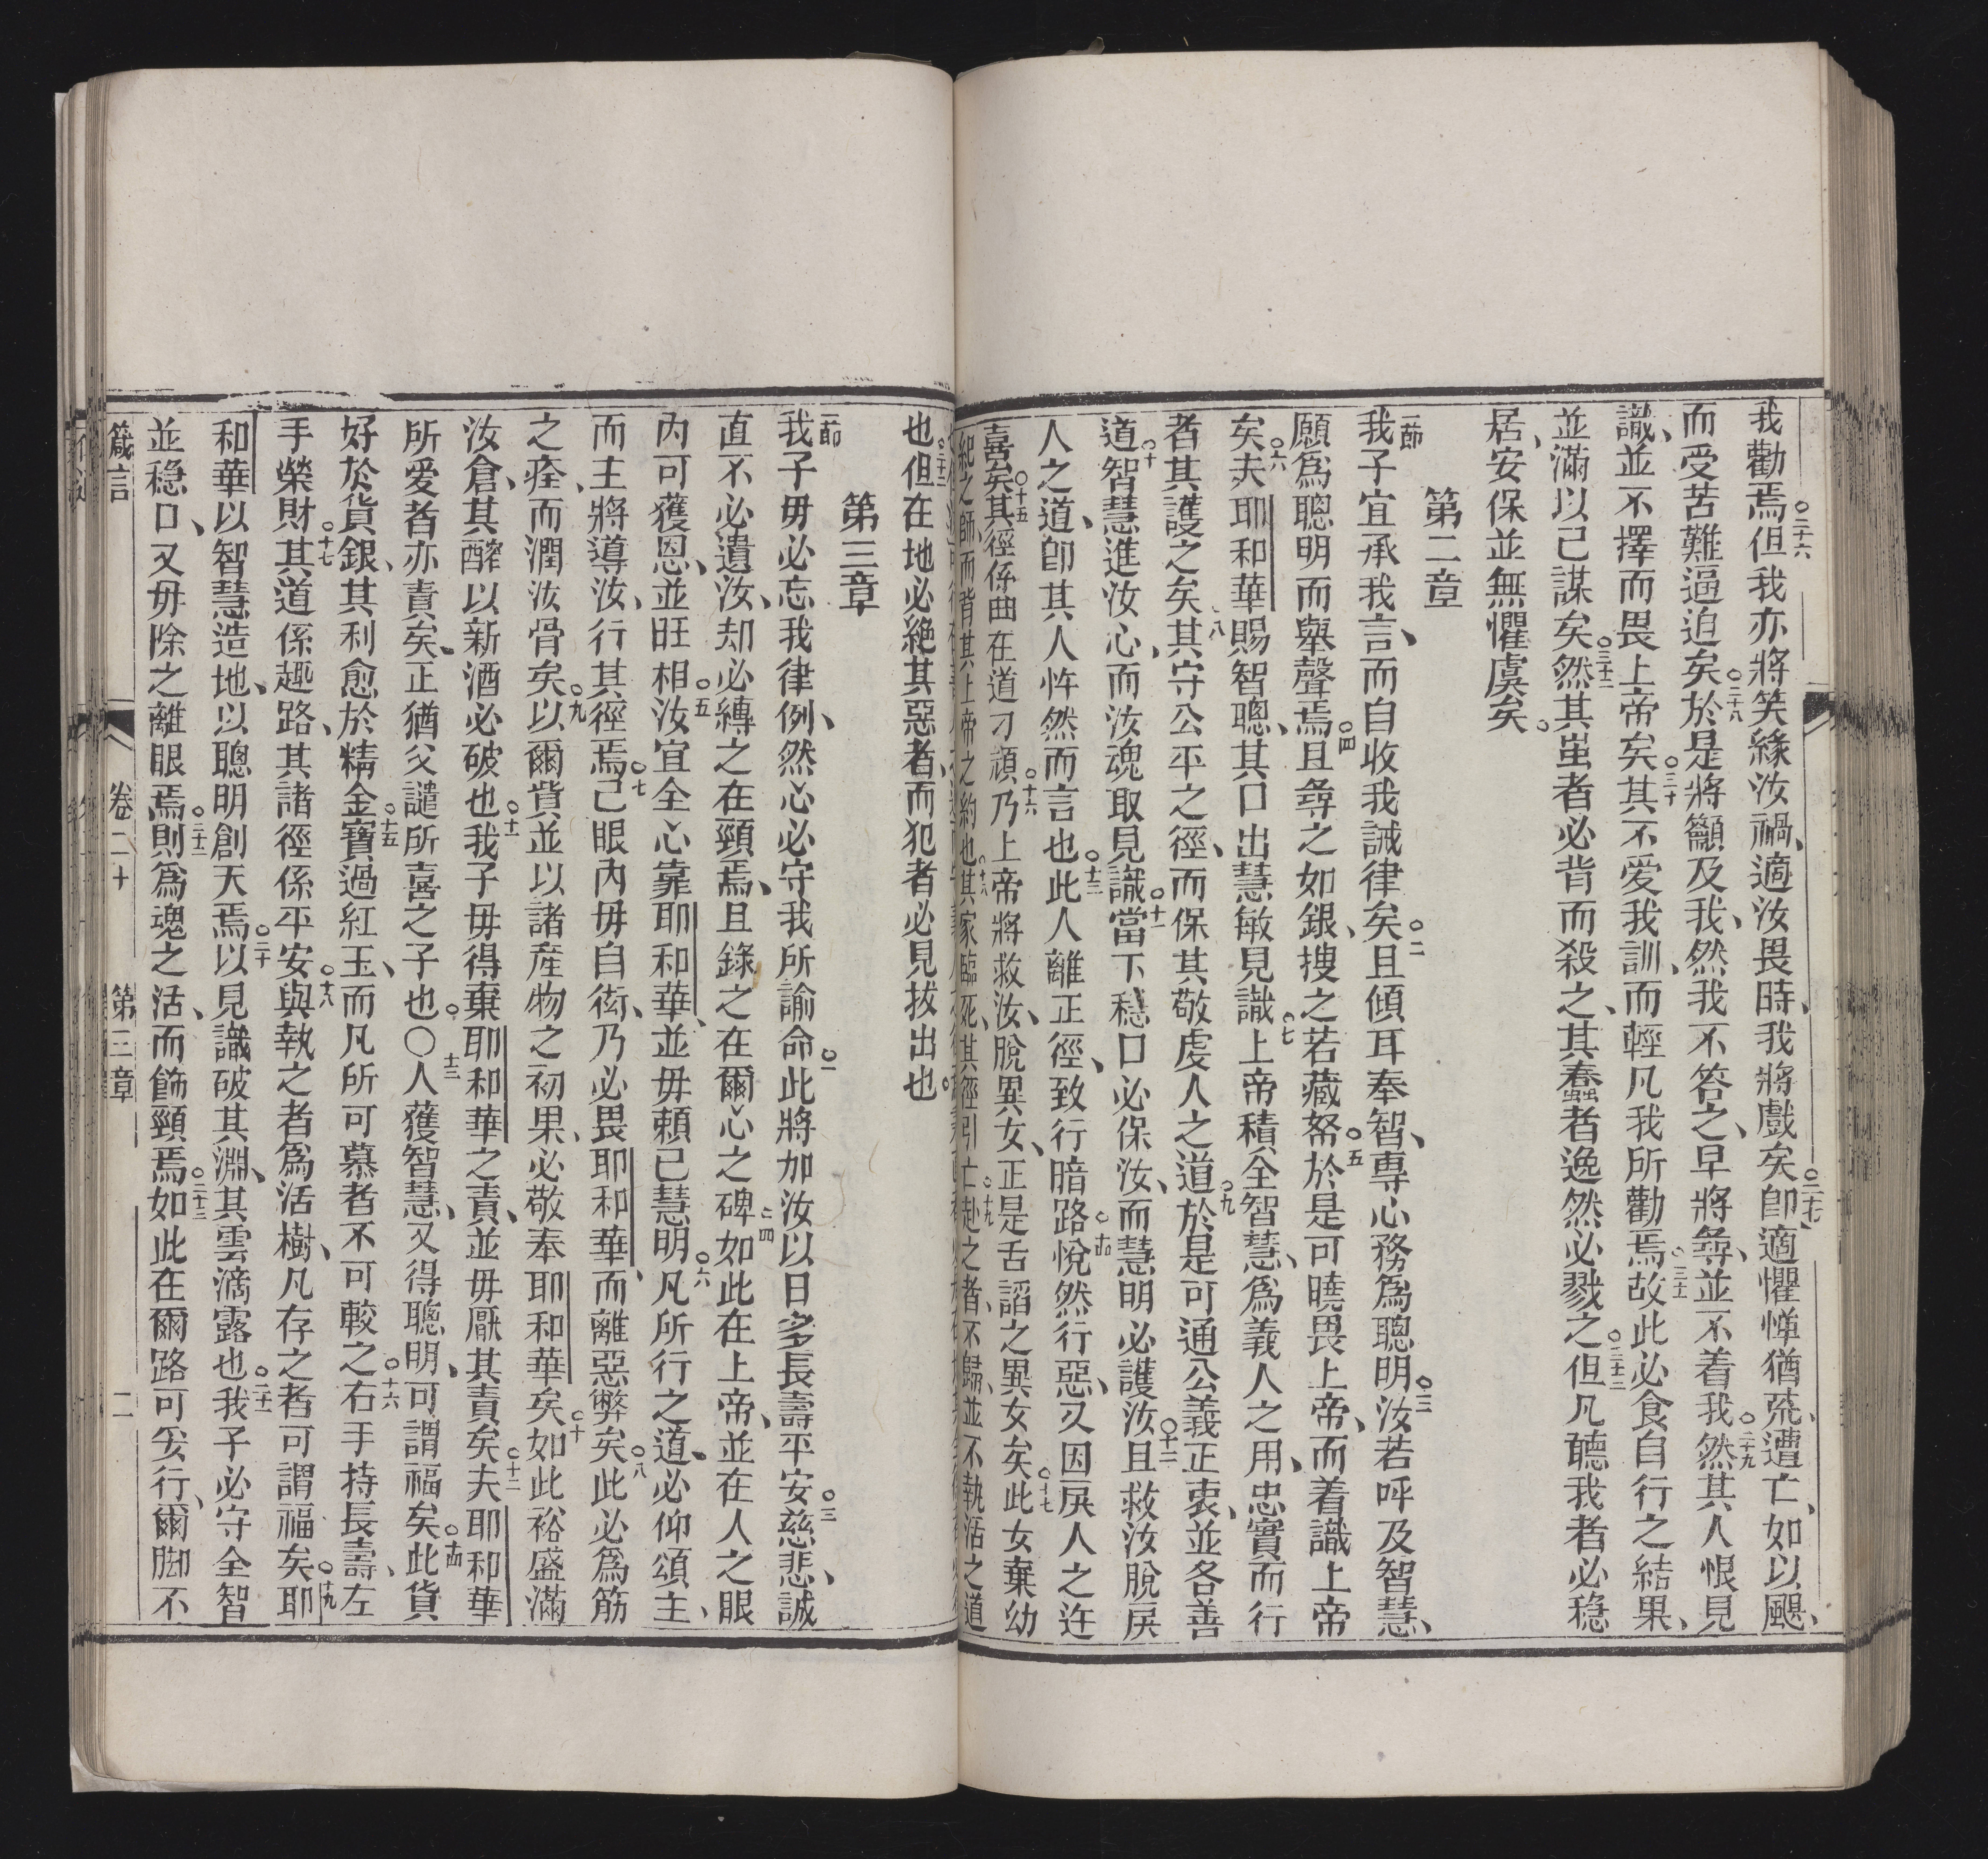 我勸焉○二十六但我亦將笑緣汝禍、適汝畏時、我將戲矣○二十七卽適懼憚猶飛、遭亡、如以颶、
而受苦難逼迫矣○二十八於是將籲及我、然我不答之、早將尋、並不着我○二十九然其人恨見
識、並不擇而畏上帝矣○三十其不愛我訓、而輕凡我所勸焉○三十一故此必食自行之結果、
並滿以己謀矣○三十二然其蚩者必背而殺之、其蠢者逸然必戮之○三十三但凡聽我者必穩
居、安保並無懼虞矣。
第二章
一節我子宜承我言、而自收我誡律矣○二且傾耳奉智、專心務爲聰明○三汝若呼及智慧、
願爲聰明而舉聲焉○四且尋之如銀、搜之若藏帑○五於是可曉畏上帝、而着識上帝
矣○六夫耶和華賜智聰、其口出慧敏見識○七上帝積全智慧、爲義人之用、忠實而行
者其護之矣○八其守公平之徑、而保其敬虔人之道○九於是可通公義正衷、並各善
道○十智慧進汝心、而汝魂取見識○十一當下穩口必保汝、而慧明必護汝○十二且救汝脫戾
人之道、卽其人忤然而言也○十三此人離正徑、致行暗路○十四悅然行惡、又因戾人之迕
喜矣○十五其徑係曲在道刁頑○十六乃上帝將救汝、脫異女、正是舌謟之異女矣○十七此女棄幼
紀之師、而背其上帝之約也○十八其家臨死、其徑引亡○十九赴之者、不歸、並不執活之道
也○二十二但在地必絕其惡者、而犯者必見拔出也。
第三章
一節我子毋必忘我律例、然心必守我所諭命○二此將加汝以日多長壽平安○三慈悲、誠
直不必遺汝、却必縳之在頸焉、且錄之在爾心之碑○四如此在上帝、並在人之眼
內可獲恩、並旺相○五汝宜全心靠耶和華、並毋賴己慧明○六凡所行之道、必仰頌主、
而主將導汝、行其徑焉○七己眼內毋自衒、乃必畏耶和華、而離惡弊矣○八此必爲筋
之痊、而潤汝骨矣○九以爾貲並以諸產物之初果、必敬奉耶和華矣○十如此裕盛滿
汝倉、其醡以新酒必破也○十一我子毋得棄耶和華之責、並毋厭其責矣○十二夫耶和華
所愛者亦責矣、正猶父譴所喜之子也。○十三人獲智慧、又得聰明、可謂福矣○十四此貨
好於貨銀、其利愈於精金○十五寶過紅玉、而凡所可慕者不可較之○十六右手持長壽、左
手榮財○十七其道係趣路、其諸徑係平安○十八與執之者爲活樹、凡存之者可謂福矣○十九耶
和華以智慧造地、以聰明創天焉○二十以見識破其淵、其雲滴露也○二十一我子必守全智
並穩口、又毋除之離眼焉○二十二則爲魂之活、而飾頸焉○二十三如此在爾路可妥行、爾脚不
箴言 卷二十 第三章 二